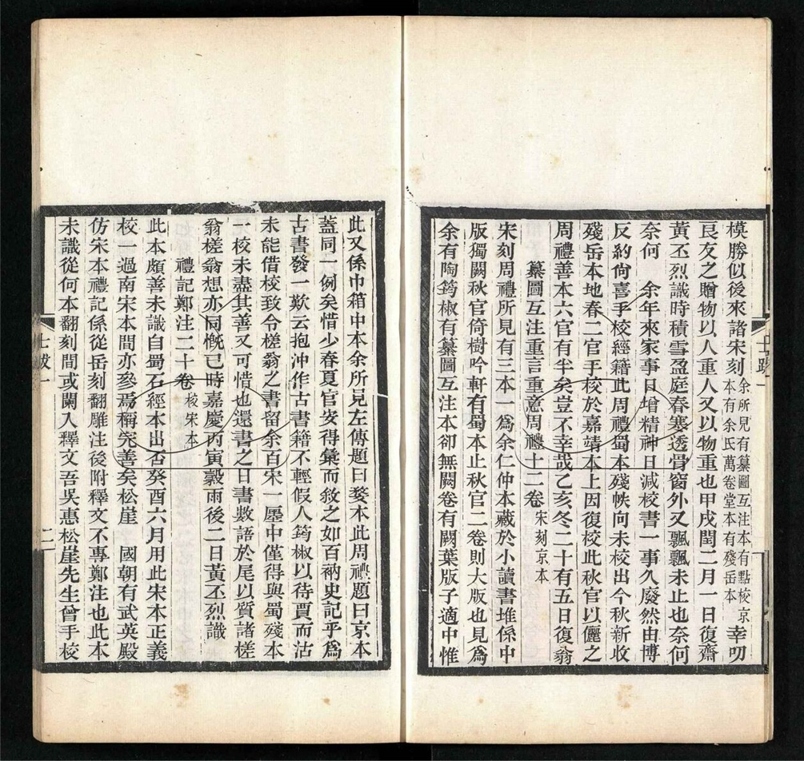 模勝似後來諸宋刻余所見有纂圖互注本有點校京本有余氏萬卷堂本有殘岳本幸叨
良友之贈物以人重人又以物重也甲戌閏二月一日復齋
黃丕烈識時積雪盈庭春寒透骨窗外又飄飄未止也奈何
奈何　余年來家事日增精神日減校書一事久廢然由博
反約尙喜手校經籍此周禮蜀本殘帙向未校出今秋新收
殘岳本地春二官手校於嘉靖本上因復校此秋官以儷之
周禮善本六官有半矣豈不幸哉乙亥冬二十有五日復翁
纂圖互注重言重意周禮十二卷宋刻京本
宋刻周禮所見有三本一爲余仁仲本藏於小讀書堆係中
版獨闕秋官倚樹吟軒有蜀本止秋官二卷則大版也見爲
余有陶筠椒有纂圖互注本卻無闕卷有闕葉版子適中惟
此又係巾箱中本余所見左傳題曰婺本此周禮題曰京本
蓋同一例矣惜少春夏官安得彙而敘之如百衲史記乎爲
古書發一歎云抱沖作古書籍不輕假人筠椒以待賈而沽
未能借校致令槎翁之書留余百宋一廛中僅得與蜀殘本
一校未盡其善又可惜也還書之日書數語於尾以質諸槎
翁槎翁想亦同慨已時嘉慶丙寅穀雨後二日黃丕烈識
禮記鄭注二十卷校宋本
此本頗善未識自蜀石經本出否癸酉六月用此宋本正義
校一過南宋本間亦參焉稱完善矣松崖　國朝有武英殿
仿宋本禮記係從岳刻翻雕注後附釋文不專鄭注也此本
未識從何本翻刻間或闌入釋文吾吳惠松崖先生曾手校
士跋一
二